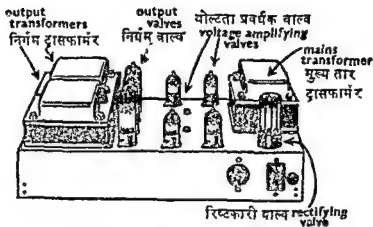 output
transformers
निर्गम ट्रासफार्मर
output
valves
नियमि वाल्व
योल्टता प्रवर्धक वाल्व
voltage amplifying
valves
mains
transformer
मुख्य तार
ट्रासफार्मर
रिष्टकारी वाल्व rectifying
valve